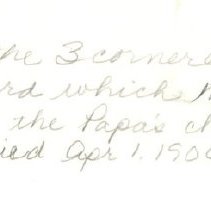 the 3 corner
rd which
the Papa's ch
ied Apr 1, 190